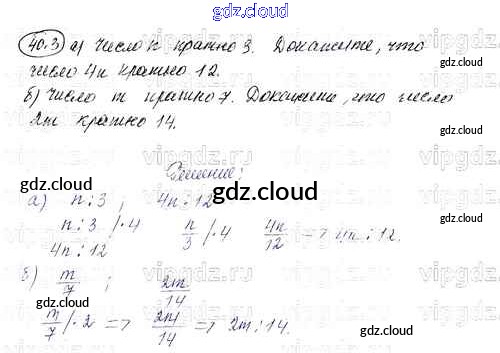 gdz.cloud gdz.cloud
40.3 а) Число n кратно 3. Докажите, что
число 4n кратно 12.
б) Число m кратно 7. Докажите, что число
2m кратно 14.
Решение:
gdz.cloud gdz.cloud gdz.cloud
а) n⋮3 ; 4n⋮12
n⋮3 /·4 n/3 /·4 4n/12 => 4n⋮12.
4n⋮12
б) m/7 ; 2m/14
gdz.cloud gdz.cloud
m/7 /·2 => 2m/14 => 2m⋮14.
gdz.cloud